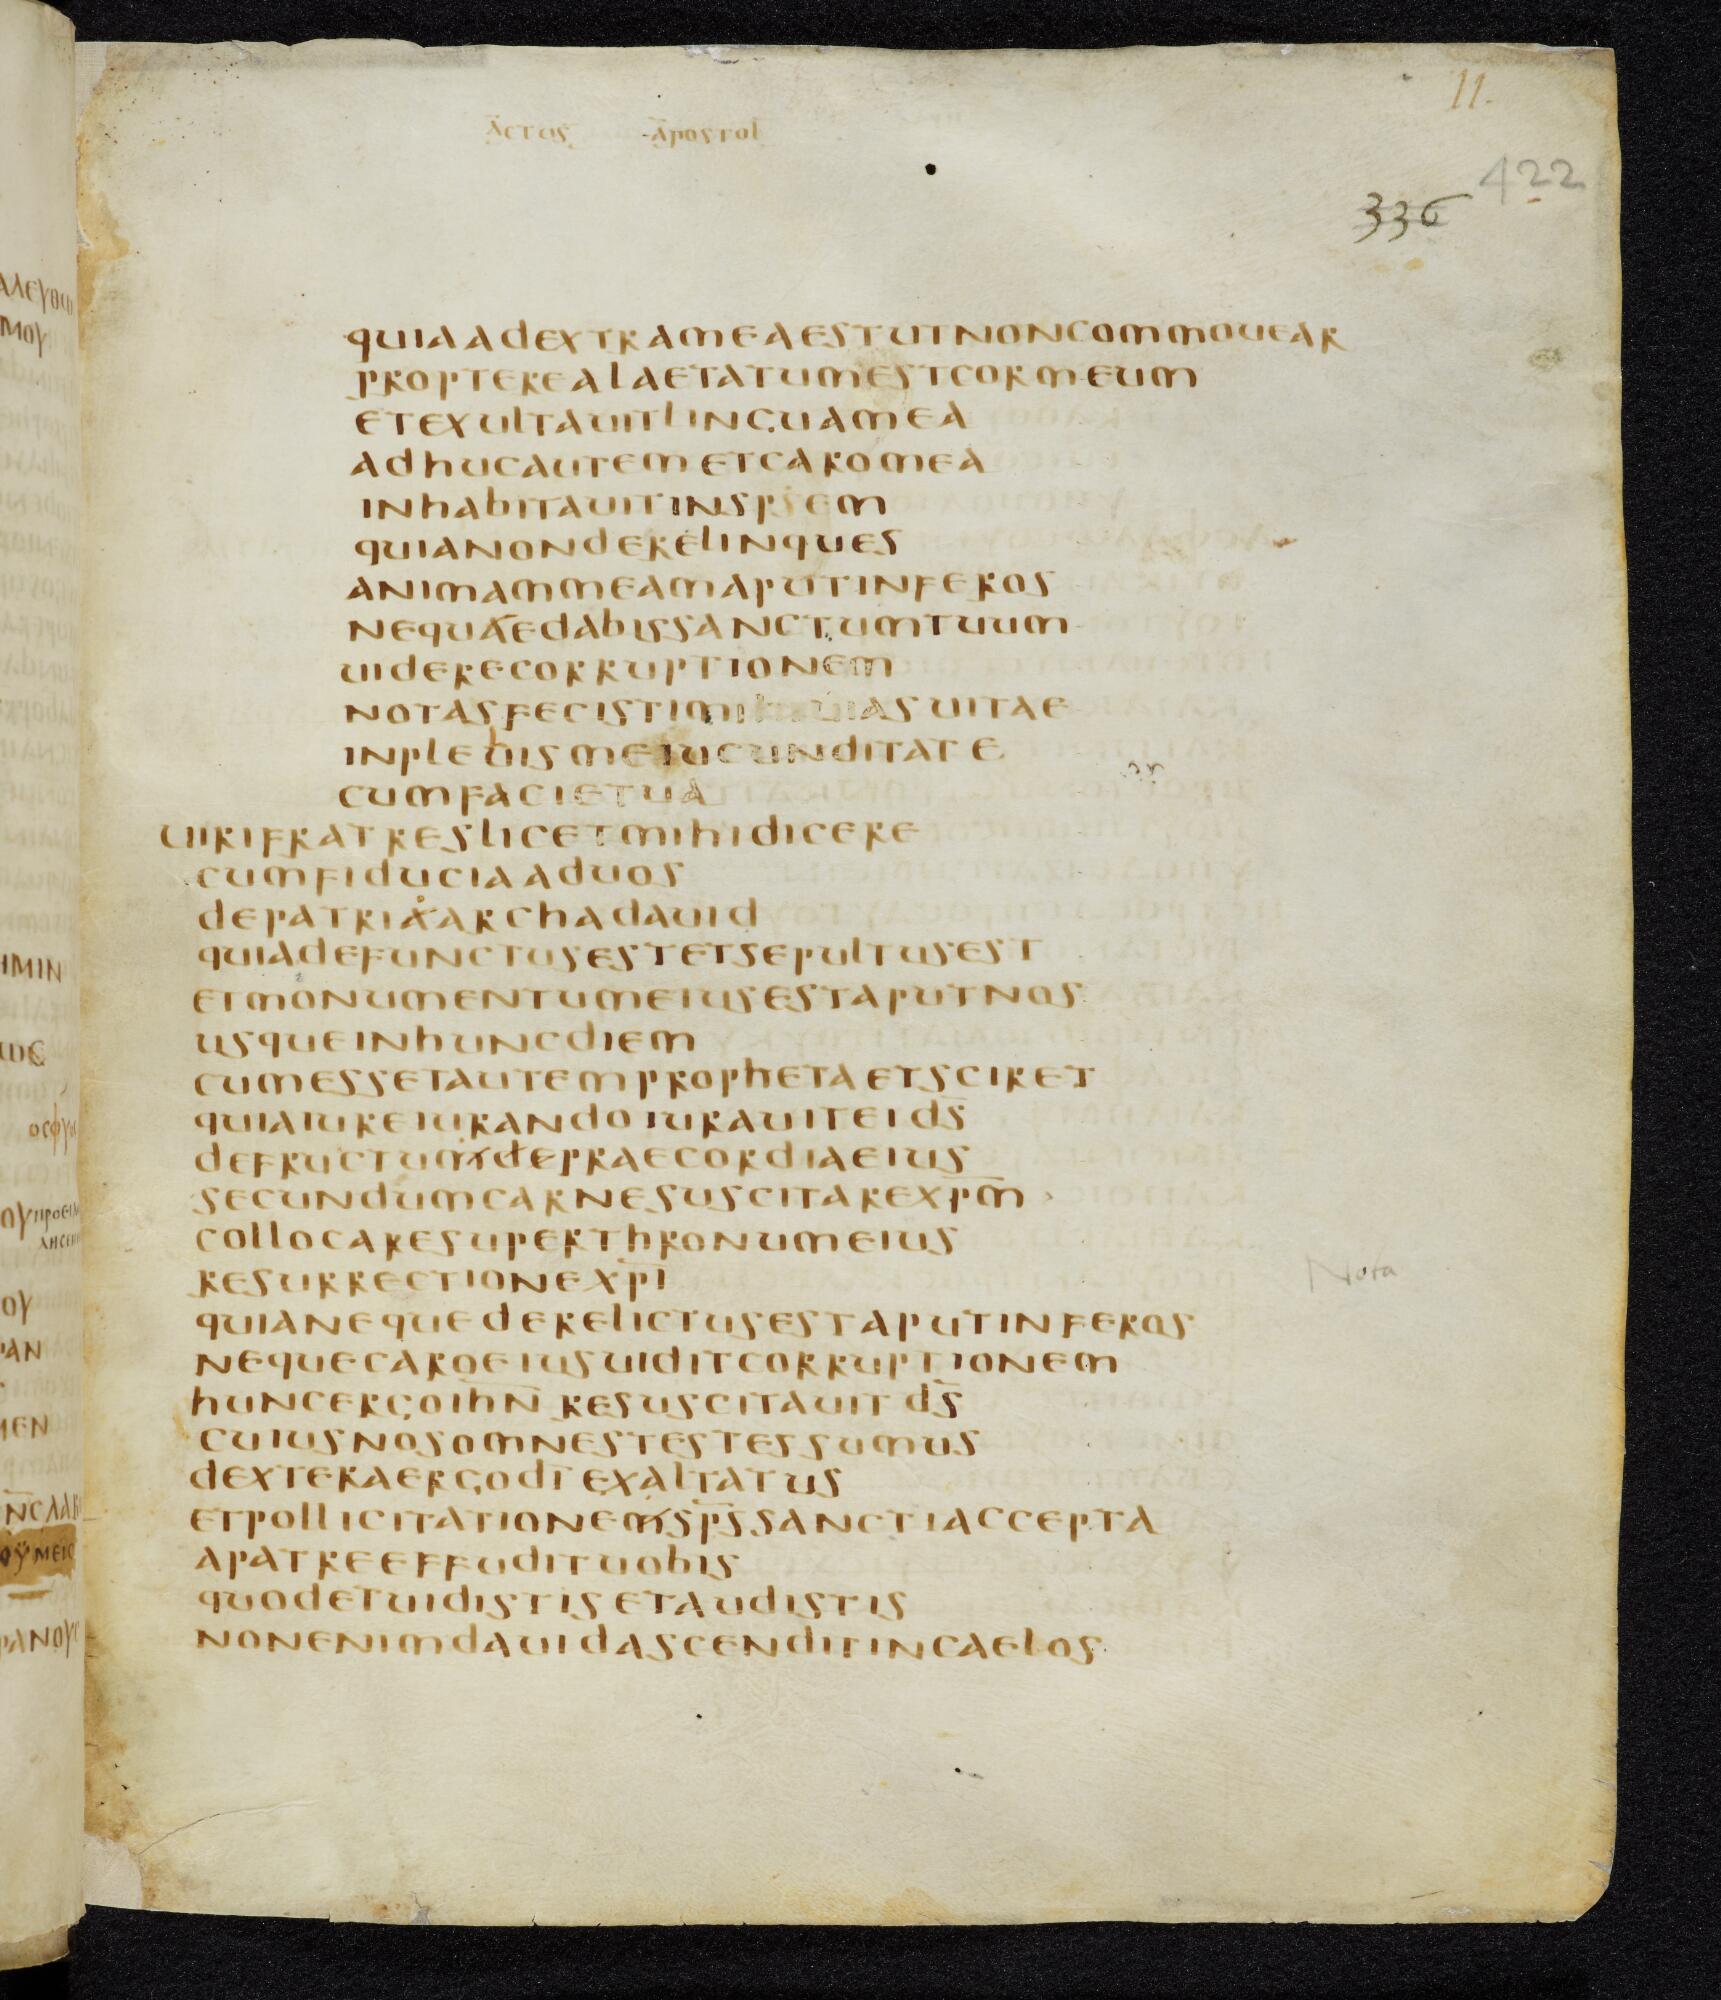 11.
actus apostol
422
336
quiaadextrameaestutnoncommouear
propterealaetatumestcormeum
etexultauitlinguamea
adhucautemetcaromea
inhabitauitinspem
quianonderelinques
animammeamaputinferos
nequaedabissanctumtuum
uiderecorruptionem
notasfecistimihiuiasuitae
inplebismeiucunditate
cumfacietua
uirifratreslicetmihidicere
cumfiduciaaduos
depatriaarchadauid
quiadefunctusestetsepultusest
etmonumentumeiusestaputnos
usqueinhuncdiem
cumessetautemprophetaetsciret
quiaiureiurandoiurauiteids̄
defructumdepraecordiaeius
secundumcarnesuscitarexp̄m̄
collocaresuperthronumeius
resurrectionexp̄ī
quianequederelictusestaputinferos
nequecaroeiusuiditcorruptionem
huncergoih̄n̄ resuscitauit ds̄
cuiusnosomnestestessumus
dexteraergodī exaltatus
etpollicitationemsp̄s̄sanctiaccepta
apatreeffudituobis
quodetuidistis etaudistis
nonenimdauidascenditincaelos
Nota
ΗΜΙΝ
ΟΥ